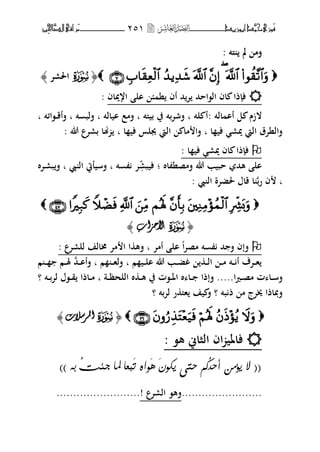 ٢٥١
ومن لم ينته :
﴿ وَاتَّقُوا اللَّهَ إِنَّ اللَّهَ شَدِيدُ الْعِقَابِ ﴾ الحشر
فإذا كان الواحد يريد أن يطمئن على الإيمان :
لازم كل أعماله : أكله ، وشربه في بيته ، ومع عياله ، ولبسه ، وأقواته ،
والطرق التي يمشي فيها ، والأماكن التي يجلس فيها ، يزنها بشرع الله :
فإذا كان يمشي فيها :
على هدي حبيب الله ومصطفاه ؛ فيبشِّر نفسه ، وسيأتي النبي ، ويبشره
، لأن ربَّنا قال لحضرة النبي :
﴿ وَبَشِّرِ الْمُؤْمِنِينَ بِأَنَّ لَهُم مِّنَ اللَّهِ فَضْلًا كَبِيرًا ﴾
الأحزاب
وإن وجد نفسه مصراً على أمر ، وهذا الأمر مخالف للشرع :
يعرف أنه من الذين غضب الله عليهم ، ولعنهم ، وأعدَّ لهم جهنم
وساءت مصيرا..... وإذا جاءه الموت في هذه اللحظة ، ماذا يقول لربه ؟
وبماذا يخرج من ذنبه ؟ وكيف يعتذر لربه ؟
﴿ وَلَا يُؤْذَنُ لَهُمْ فَيَعْتَذِرُونَ ﴾ المرسلات
فالميزان الثاني هو :
(( لا يؤمن أحدكم حتى يكون هواه تبعا لما جئت به ))
........................وهو الشرع !.........................